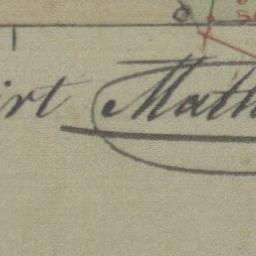 irt Math